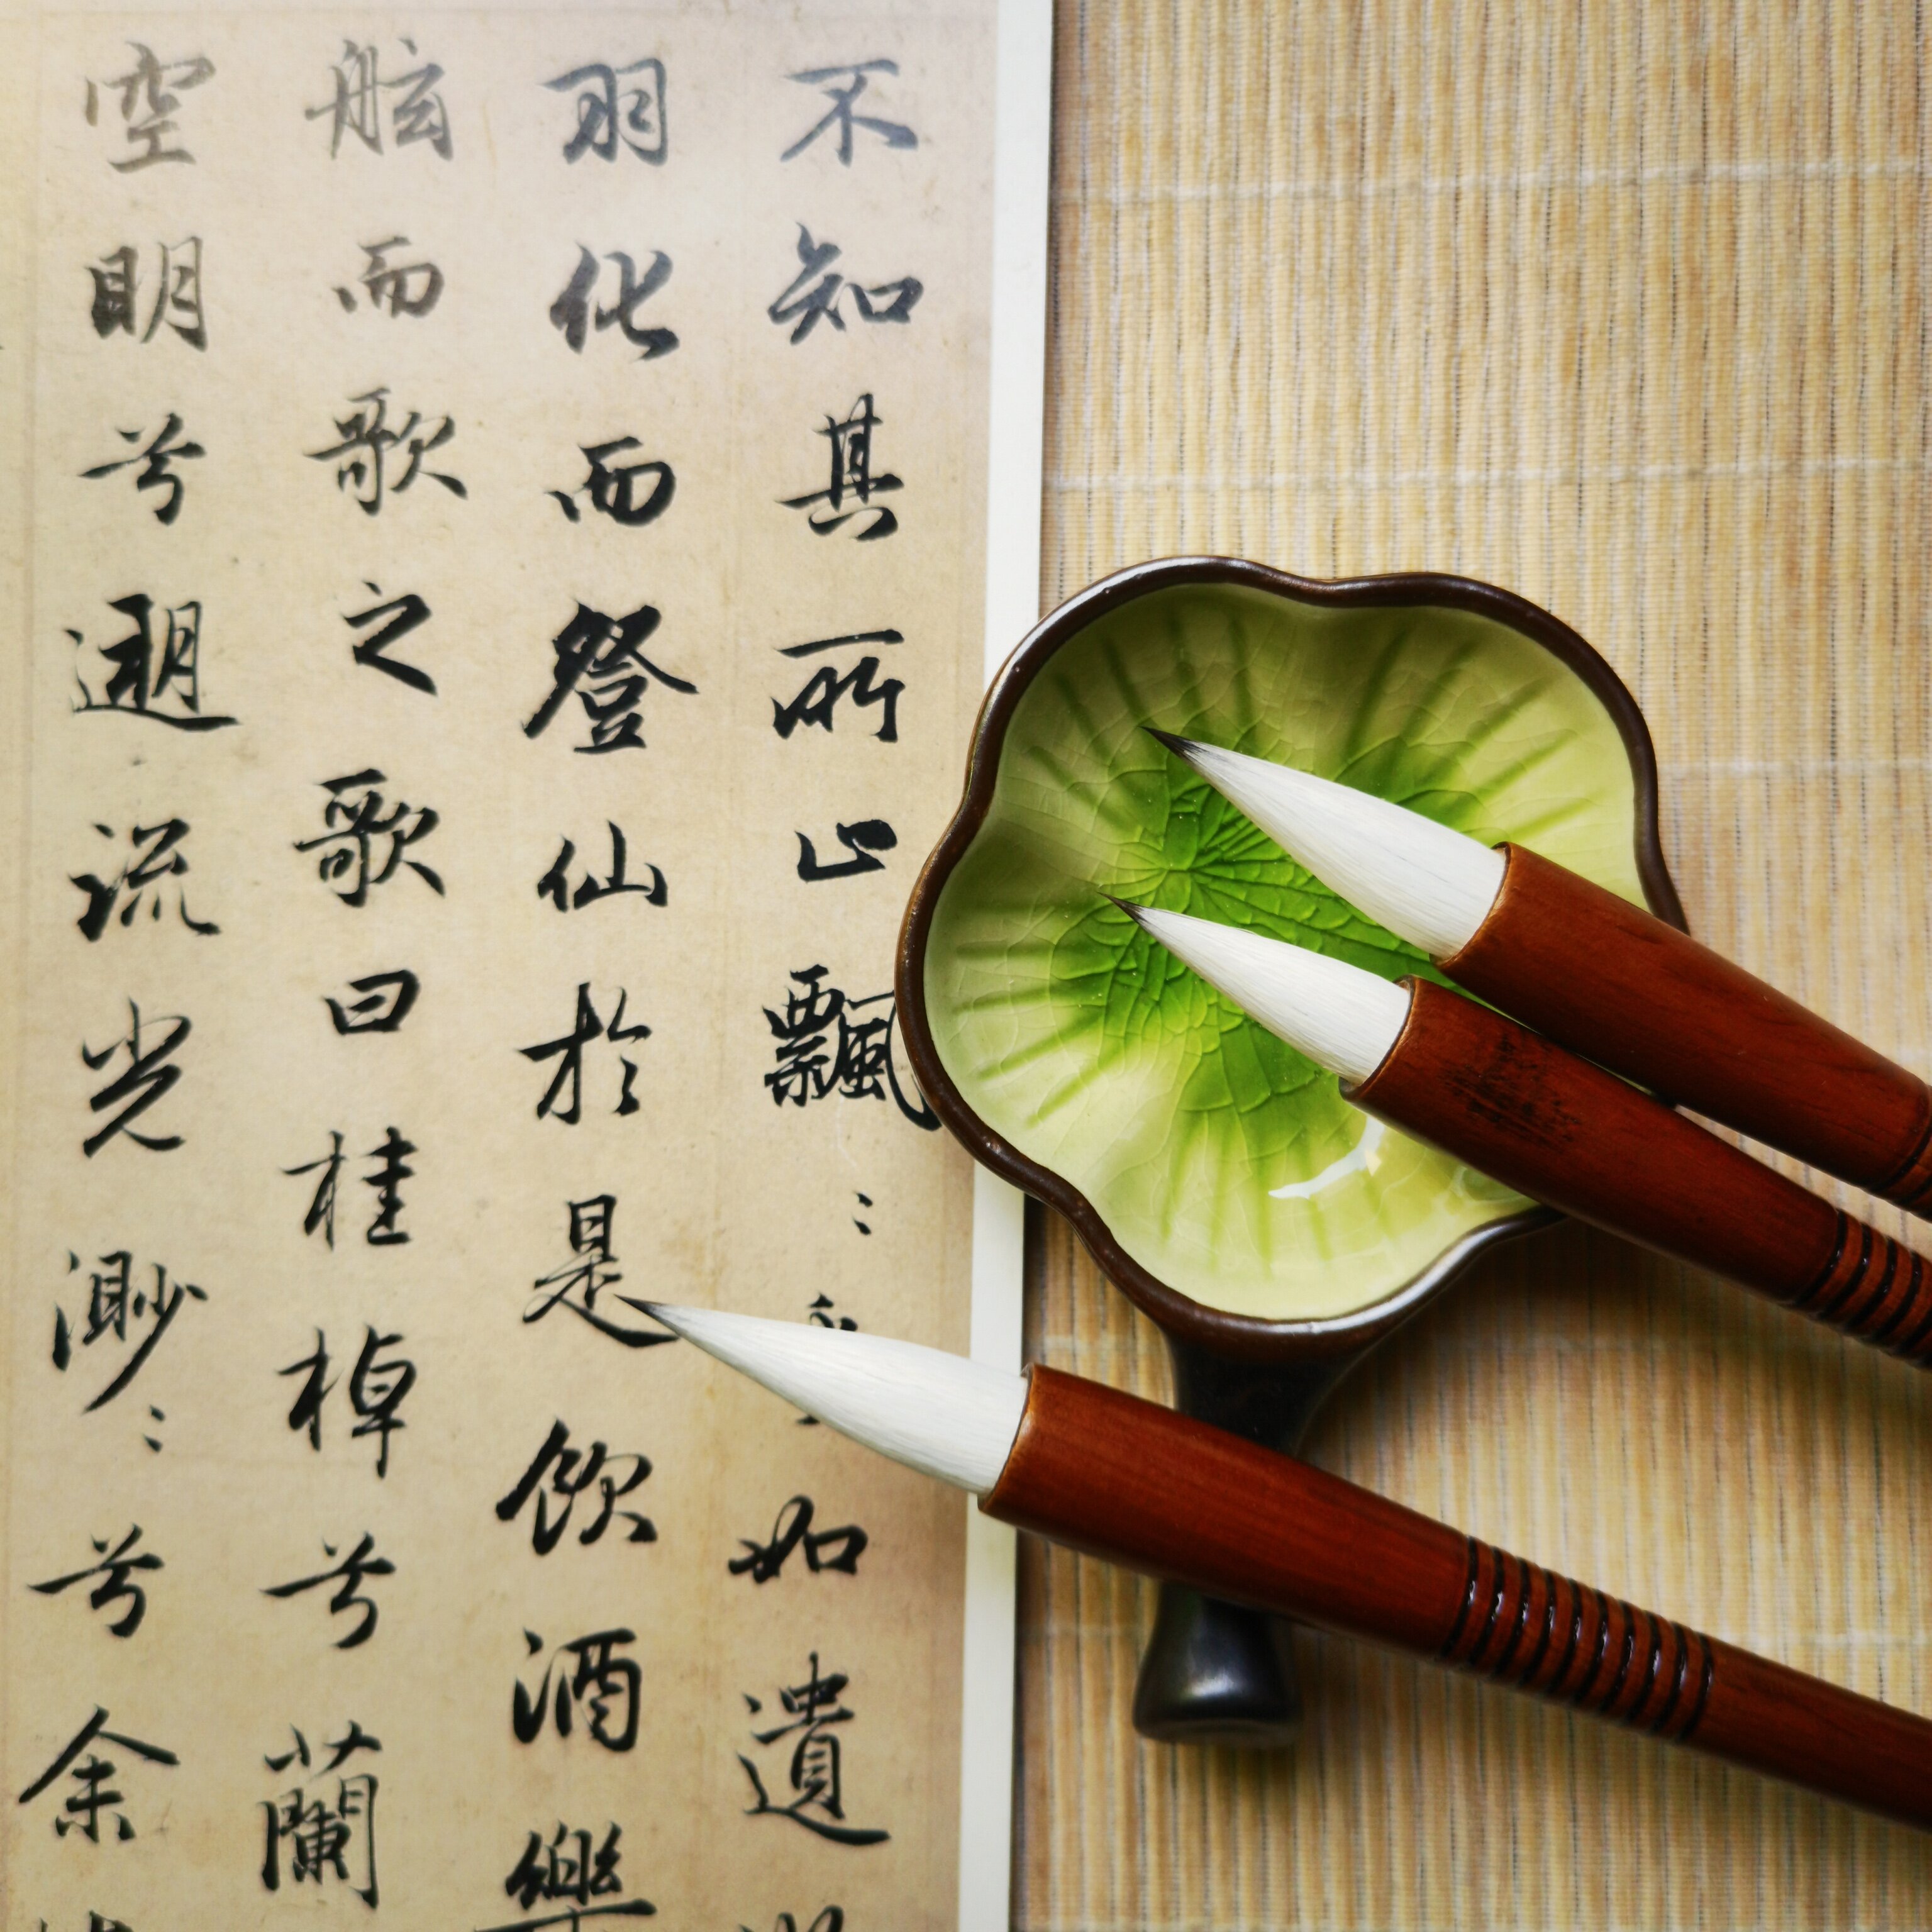 不知其所止飄〻乎如遺
羽化而登仙於是飲酒樂
舷而歌之歌曰桂棹兮蘭
空明兮遡流光渺〻兮余